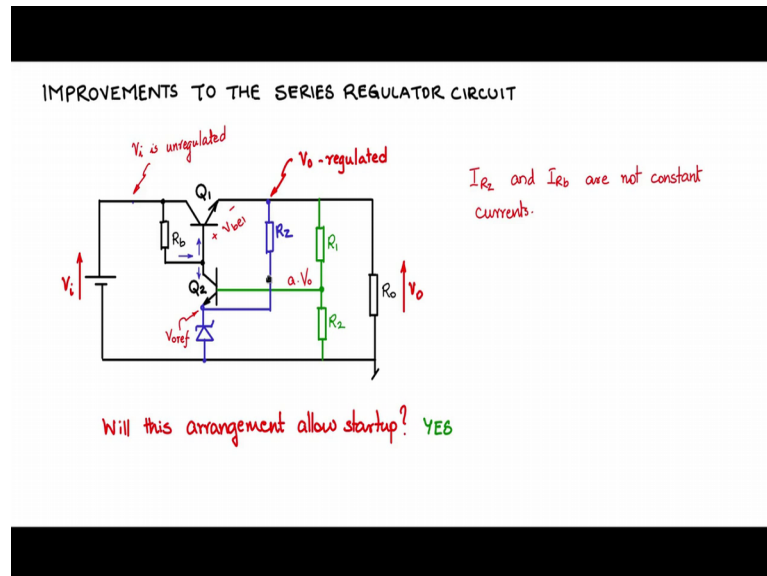 IMPROVEMENTS TO THE SERIES REGULATOR CIRCUIT
Vi is unregulated
Vo - regulated
IRz and IRb are not constant
currents.
Q1
+ Vbe1 -
Rb
Rz
R1
Q2
a.Vo
Vi
Ro
Vo
Voref
R2
Will this arrangement allow startup? YES